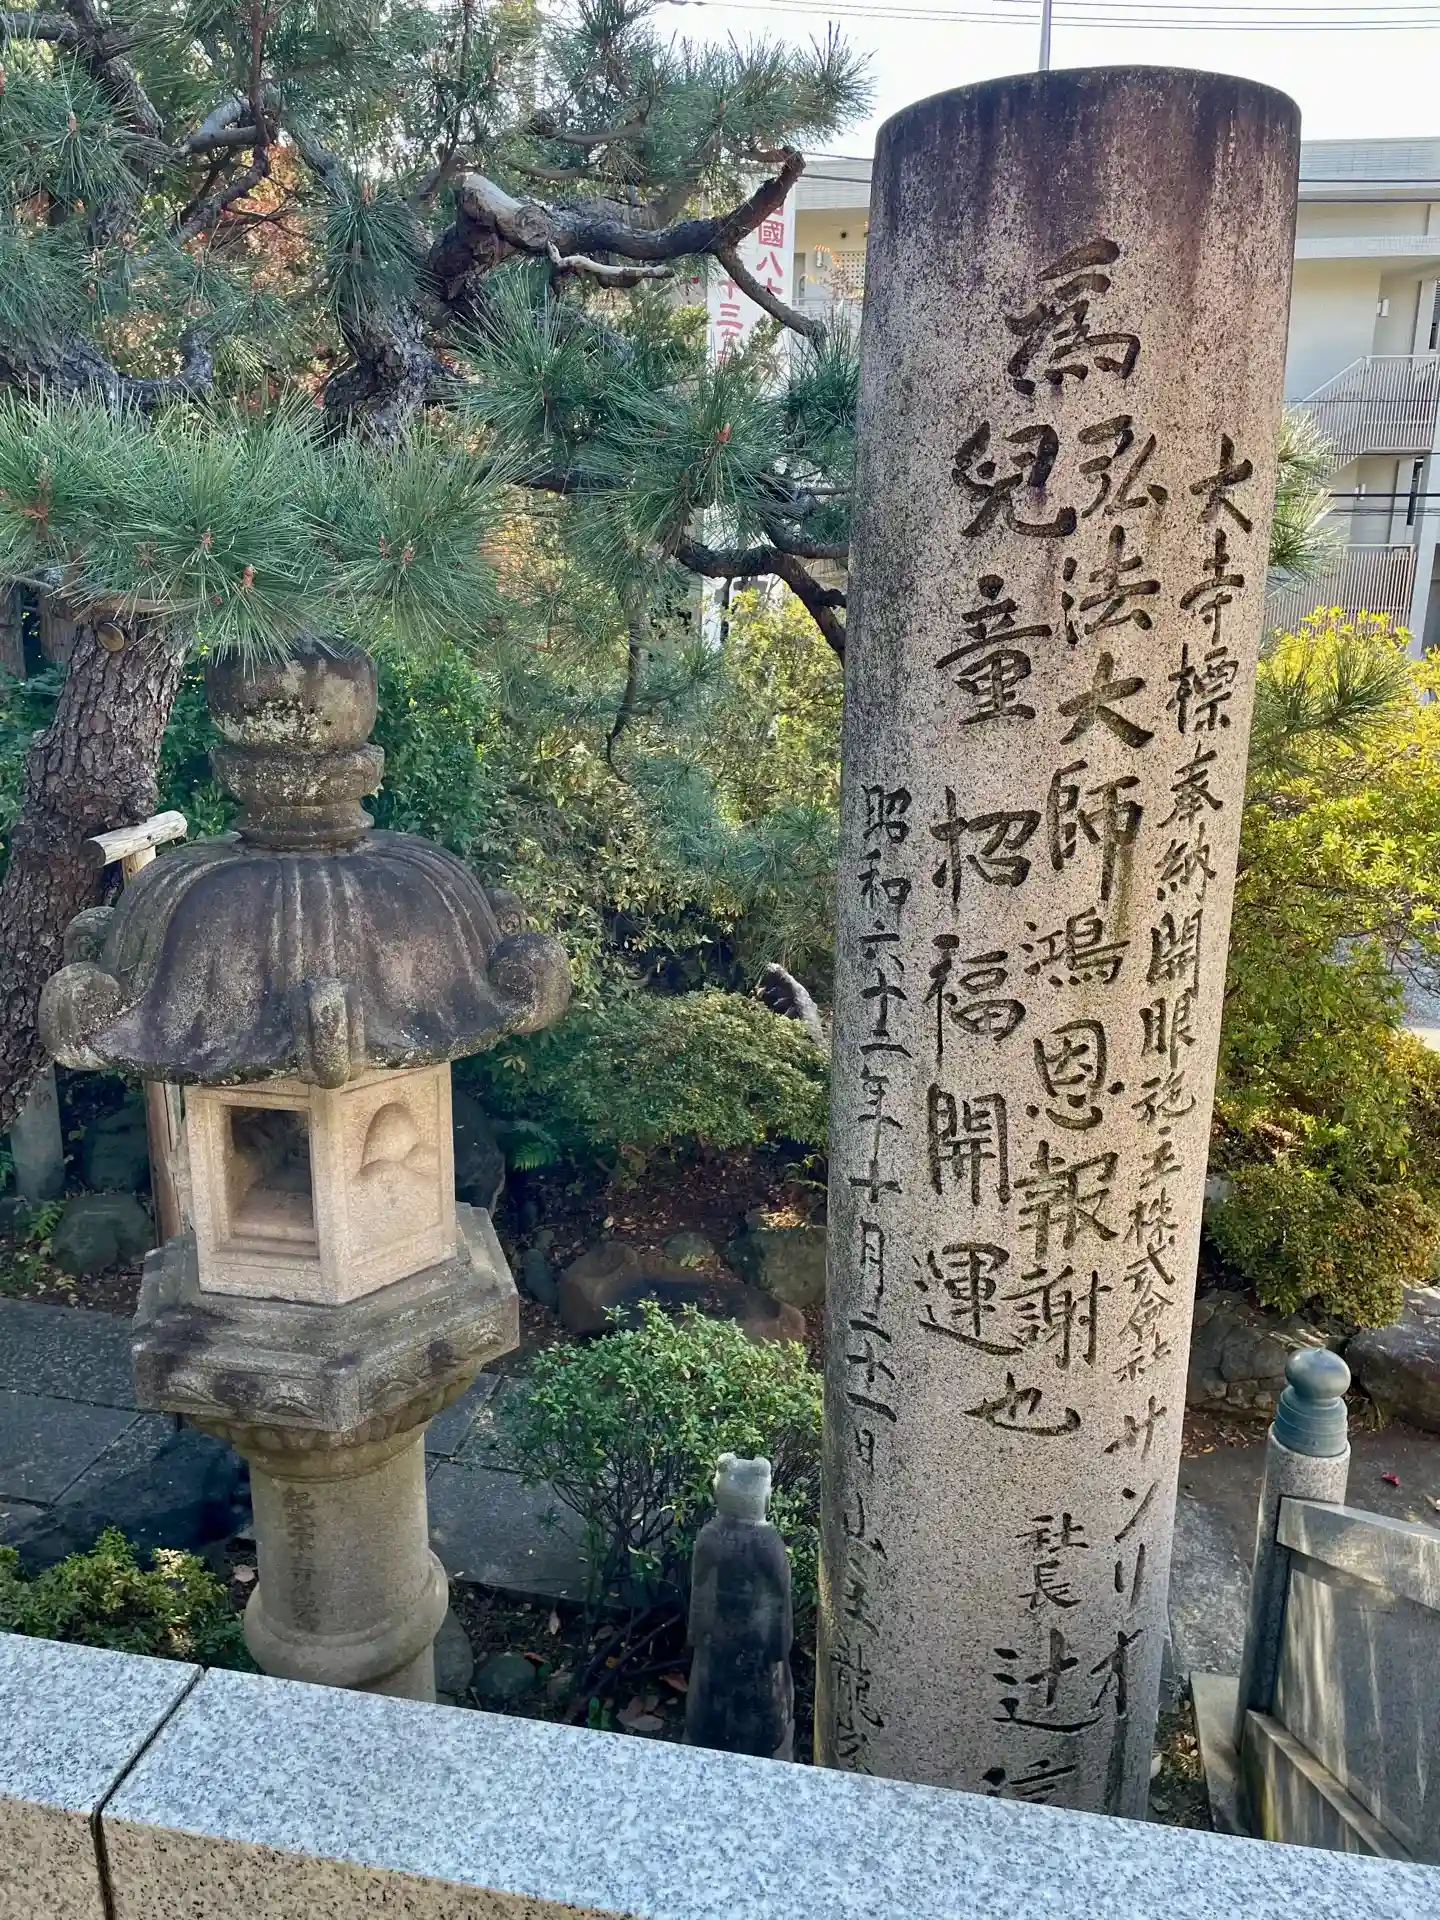 大寺標奉納開眼施主株式会社サンリオ
社長 辻信
為弘法大師鴻恩報謝
兒童招福開運也
昭和六十二年十月二十一日
国八十
十三